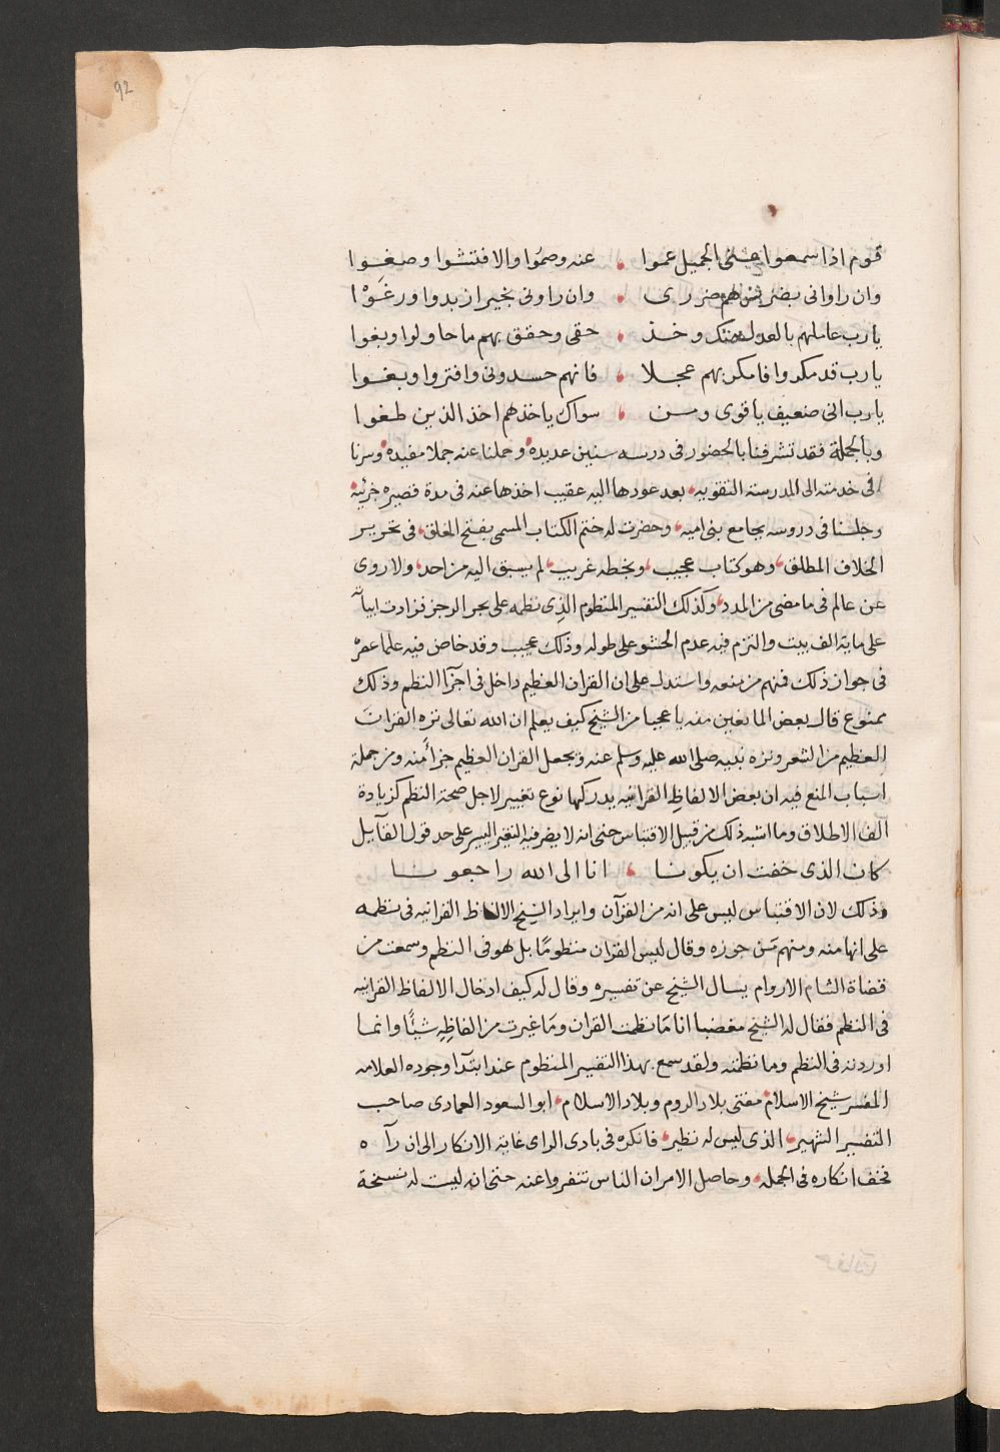 92
قوم اذا سمعوا عنى الجميل عموا ، عنه وصموا والا فتشوا وصغوا
وان راوانى بضر سرهم ضررى ، وان راونى بخير ازبدوا ورغوا
يارب عاملهم بالعدل منك وخذ ، حقى وحقق بهم ما حاولوا وبغوا
يارب قد مكروا فامكر بهم عجلا ، فانهم حسدونى وافتروا وبغوا
يارب انى ضعيف يا قوى ومن ، سواك ياخذهم اخذ الذين طغوا
وبالجملة فقد تشرفنا بالحضور فى درسه سنين عديده، وحملنا عنه جملا مفيده، وسرنا
فى خدمته الى المدرسة التقويه، بعد عودها اليه عقيب اخذها عنه فى مدة قصيره جزئيه،
وجلسنا فى دروسه بجامع بنى اميه، وحضرت له ختم الكتاب المسمى بفتح المغلق، فى تحرير
الخلاف المطلق، وهو كتاب عجيب، وبخطه غريب، لم يسبق اليه من احد، ولا روى
عن عالم فى ما مضى من المدد، وكذلك التفسير المنظوم الذِى نظمه على بحر الرجز فزادت ابياته
على ماية الف بيت والتزم فيه عدم الحشو على طوله وذلك عجيب وقد خاض فيه علما عصره
فى جواز ذلك فمنهم من منعه واستدل على ان القران العظيم داخل فى اجزآ النظم وذلك
ممنوع قال بعض المانعين منه يا عجبا من الشيخ كيف يعلم ان الله تعالى نزه القرانَ
العظيم من الشعر ونزه نبيه صلى الله عليه وسلم عنه ويجعل القران العظيم جزأً منه ومن جملة
اسباب المنع فيه ان بعض الالفاظِ القرانيه يدركها نوع تغيير لاجل صحة النظم كزيادة
الف الاطلاق وما اشبه ذلك من قبيل الاقتباس حتى انه لا يضر فيه التغير اليسير على حد قول القآيل
كان الذى خفت ان يكونا ، انا الى الله راجعونا
وذلك لان الاقتباس ليس على انه من القرآن وايراد الشيخ الالفاظ القرانيه فى نظمه
على انها منه ومنهم مَن جوزه وقال ليس القران منظومًا بل هو فى النظم وسمعت من
قضاة الشام الاروام يسال الشيخ عن تفسيره وقال له كيف ادخال الالفاظ القرانيه
فى النظم فقال له الشيخ مغضبا انا مَا نظمت القران ومَا غيرت من الفاظِهِ شيئًا وانما
اوردته فى النظم وما نظمته ولقد سمع بهذا التفسير المنظوم عند ابتدآ وجوده العلامه
المفسر شيخ الاسلام مفتى بلاد الروم وبلاد الاسلام، ابو السعود العمادى صاحب
التفسير الشهير، الذى ليس له نظير، فانكره فى بادى الراى غاية الانكار الى ان رآه
فخف انكاره فى الجمله، وحاصل الامر ان الناس تنفروا عنه حتى انه ليست له نسخة